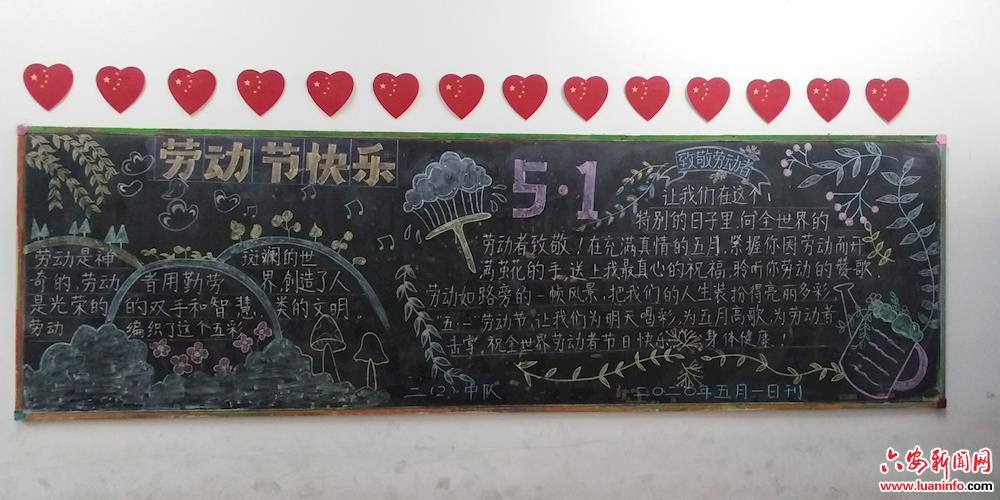 劳动节快乐
劳动是神
奇的,劳动
是光荣的
劳动
斑斓的世
者用勤劳 界,创造了人
的双手和智慧, 类的文明
编织了这个五彩
5·1
致敬劳动者
让我们在这个
特别的日子里,向全世界的
劳动者致敬!在充满真情的五月,紧握你因劳动而开
满茧花的手,送上我最真心的祝福,聆听你劳动的赞歌,
劳动如路旁的一帧风景,把我们的人生装扮得亮丽多彩,
"五·一"劳动节,让我们为明天喝彩,为五月高歌,为劳动者
击掌,祝全世界劳动者节日快乐 身体健康!
二(2)中队
二〇二〇年五月一日刊
六安新闻网
www.luaninfo.com